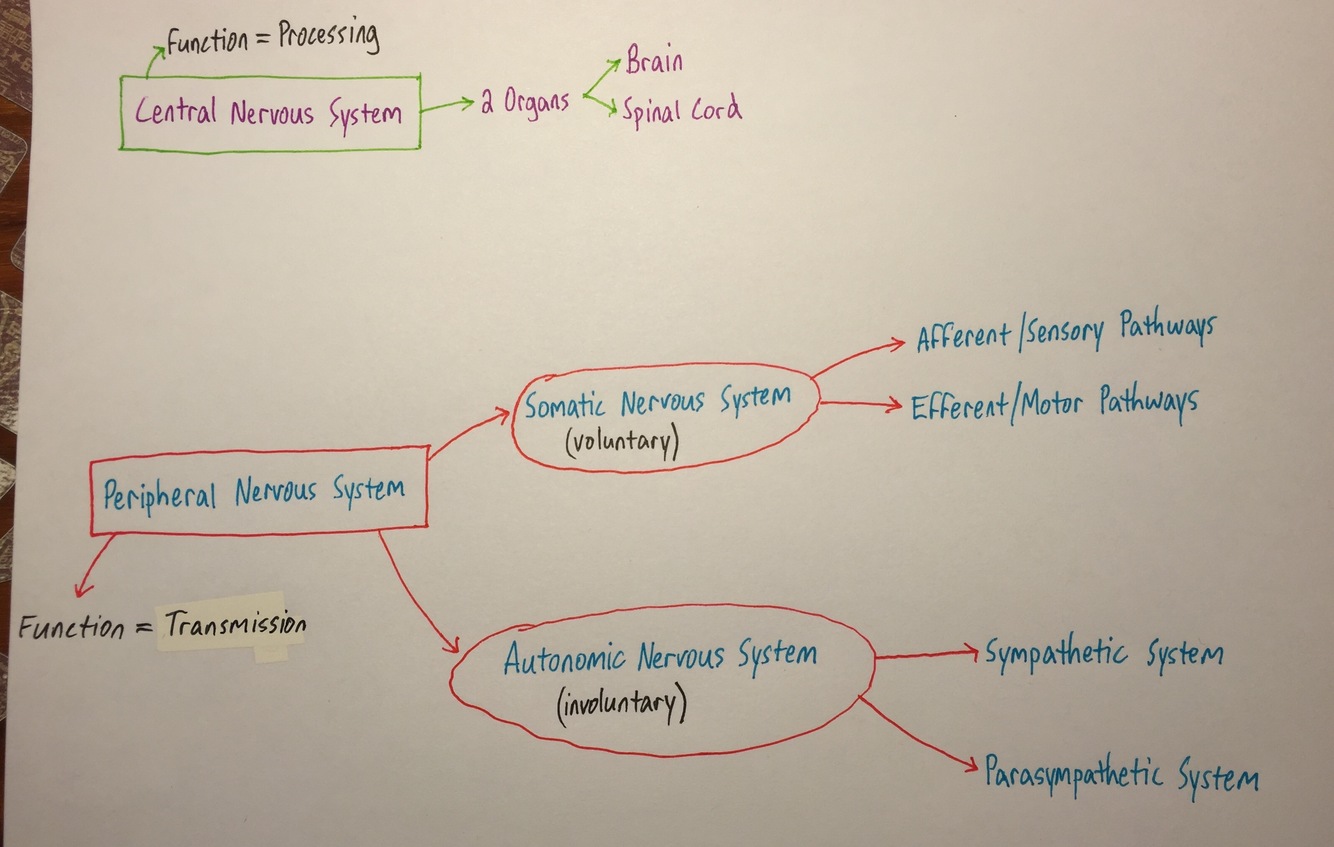 Function = Processing
Central Nervous System
2 Organs
Brain
Spinal Cord
Afferent/Sensory Pathways
Efferent/Motor Pathways
Somatic Nervous System
(voluntary)
Peripheral Nervous System
Function = Transmission
Autonomic Nervous System
(involuntary)
Sympathetic System
Parasympathetic System